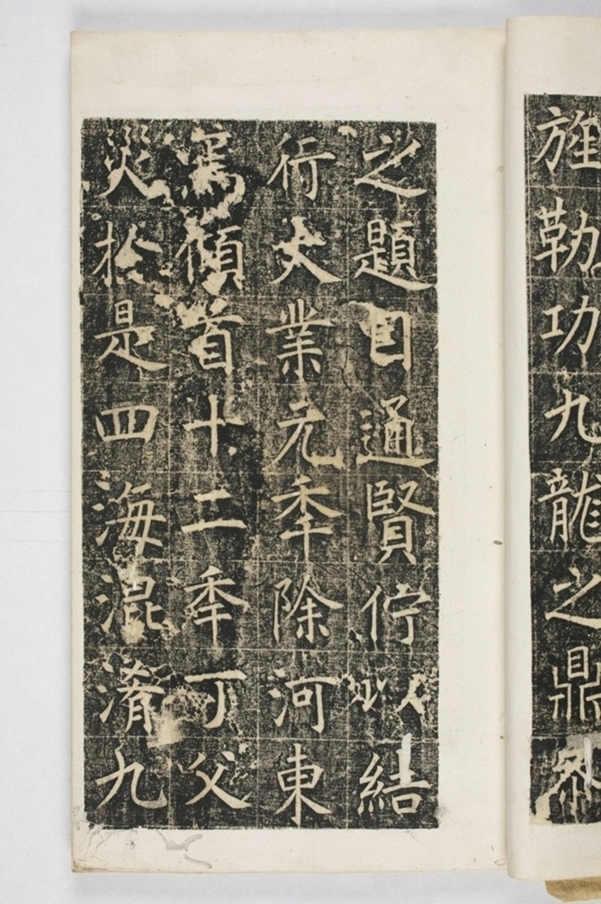 旌勒功九龍之鼎
之題目通賢佇以結
行大業元秊除河東
首十二秊丁父
災於是四海混淆九